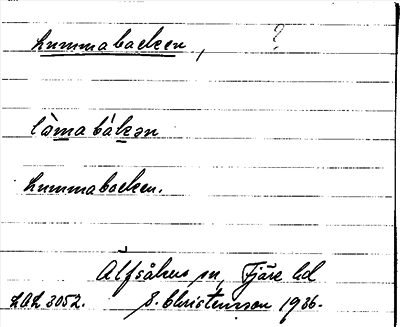 Lummabacken, ?
lo̊mabákən
Lummabacken.
Älfsåkers sn, Fjäre hd
LAL 3052. S. Christensson 1936.